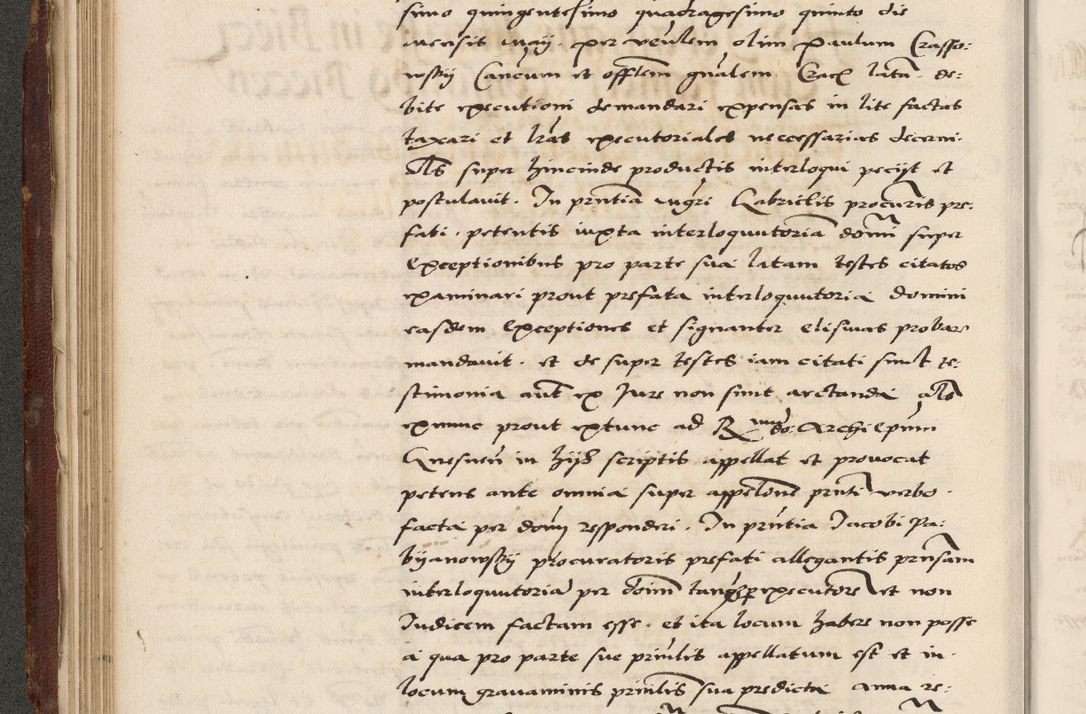 simo quingentesimo quadragesimo quinto die
mensis maij . per venlem olim paulum Crasso:
wskÿ Cancum et offlem gnalem Crac latã . de:
bite executioni demandari expensas in lite factas
taxari et lras executoriales necessarias decerni .
Als super hincinde productis interloqui pecijt et
postulavit . In pnntia mgri Gabrielis procuris pre:
fati . petentis iuxta interloquutoria domi super
exceptionibus pro parte sua latam testes citatos
examinari prout prefata interloquutoria domini
easdem exceptiones et signanter elisivas probare
mandavit . et de super testes iam citati sint te:
stimonia aut ex Jure non sint arctanda als
exnunc prout extunc ad R mum do: Archiepum
Gnesnen in hijs scriptis appellat et provocat
petens ante omnia super appelone pnnti verbo
facta per dom responderi . In pnntia Jacobi Pa:
bÿanowskÿ procuratoris prefati allegantis pnnsam
interloquutoria per doim tanq executore et non
Iudicem factam esse . et ita locum habere non posse
a qua pro parte sue prinlis appellatum est et in .
locum gravaminis prinlis sua predicta anna re: